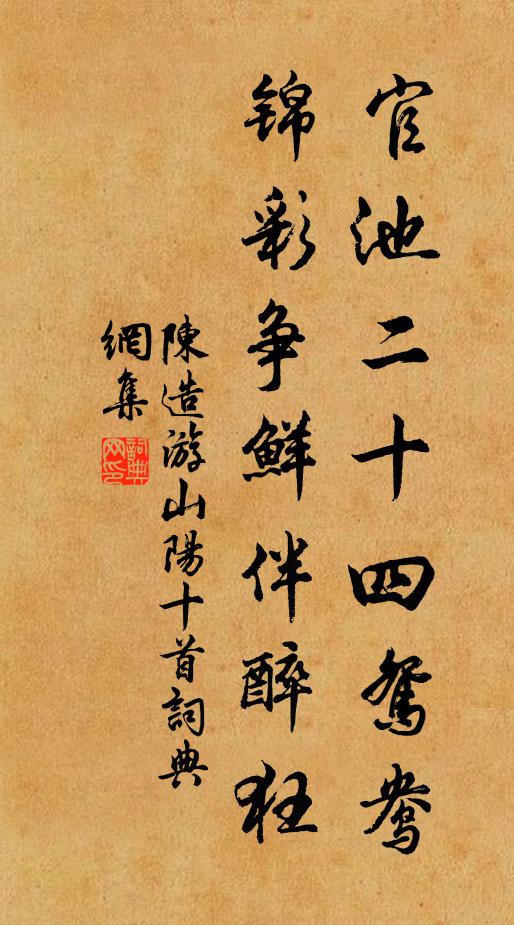 官池二十四鸳鸯
锦彩争鮮伴醉狂
陳造游山陽十首詞典
網集
詞典网印